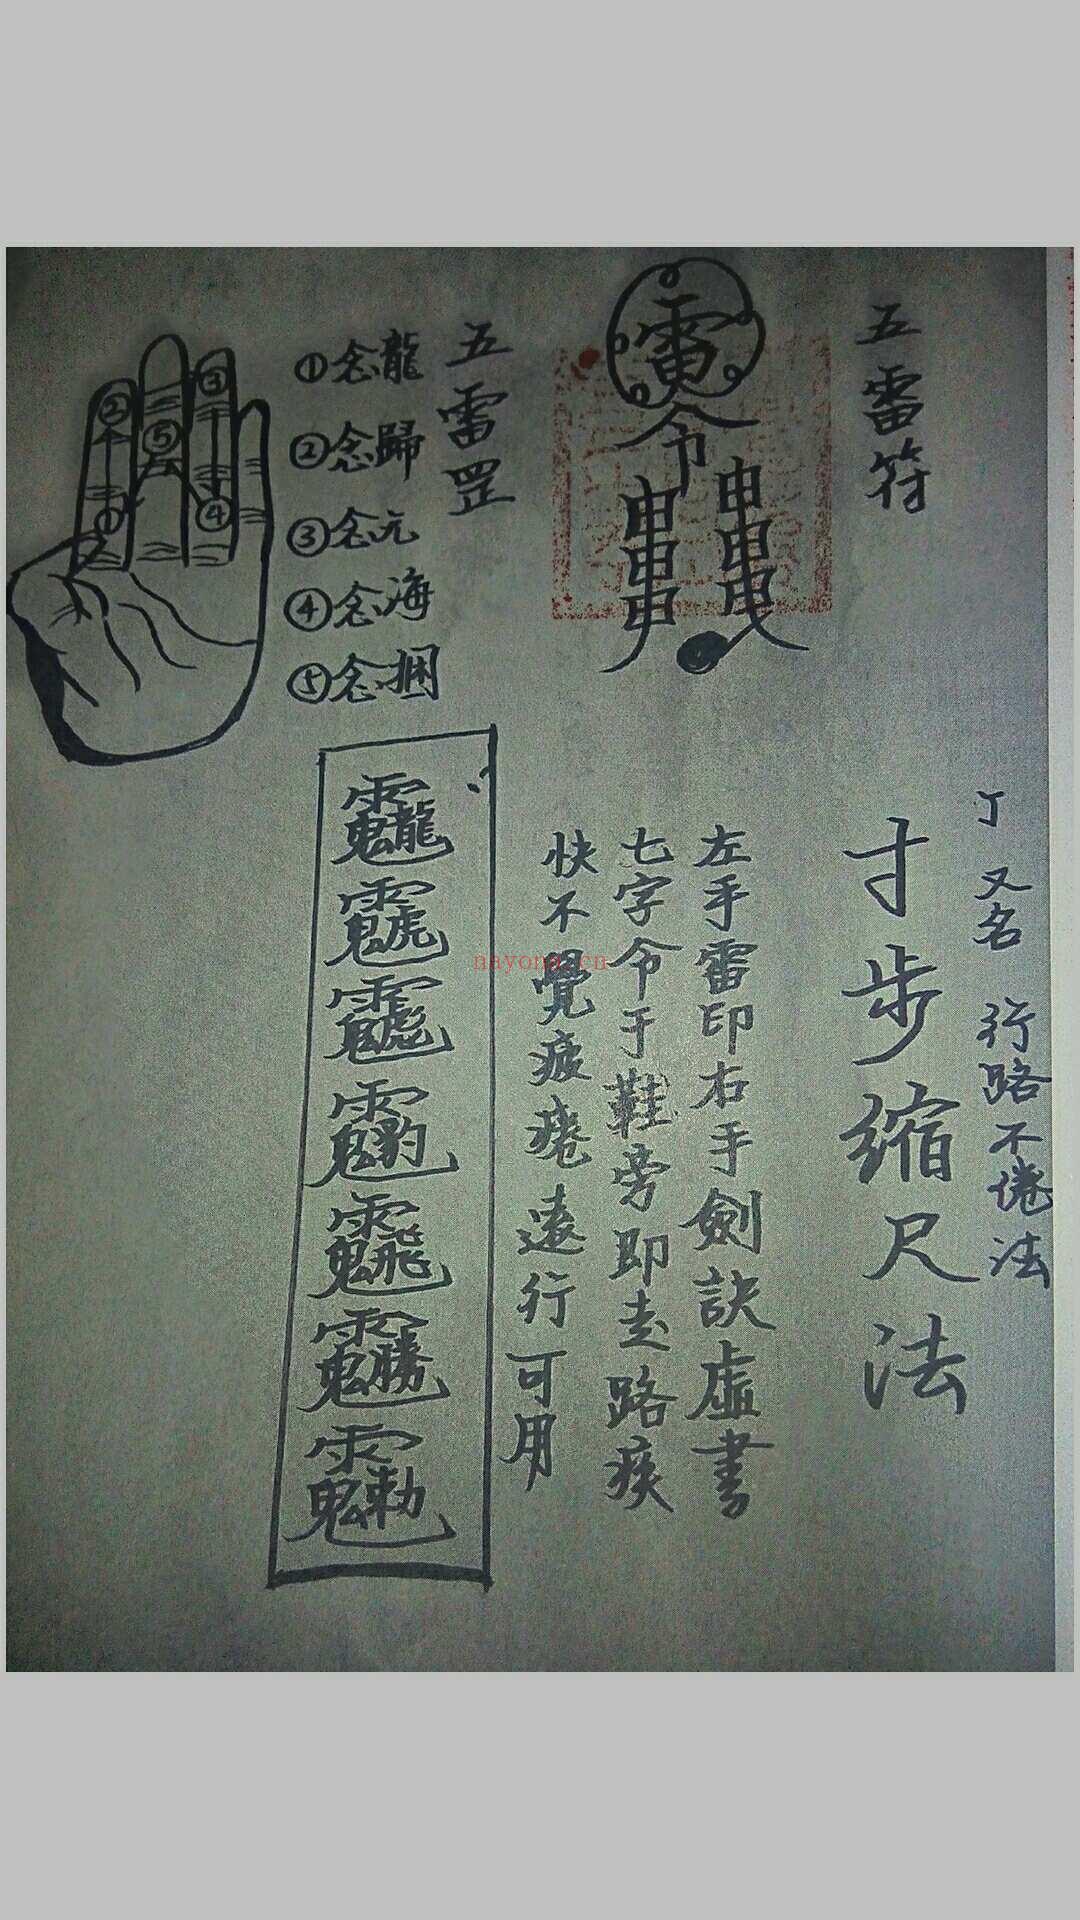 五雷符
雷令
五雷罡
①念龍
②念歸
③念元
④念海
⑤念捆
③
②
⑤
①
④
又名 行路不倦法
寸步缩尺法
左手雷印右手劍訣虛書
七字令于鞋旁即走路疾
快不覺疲痿遠行可用
nayona.cn